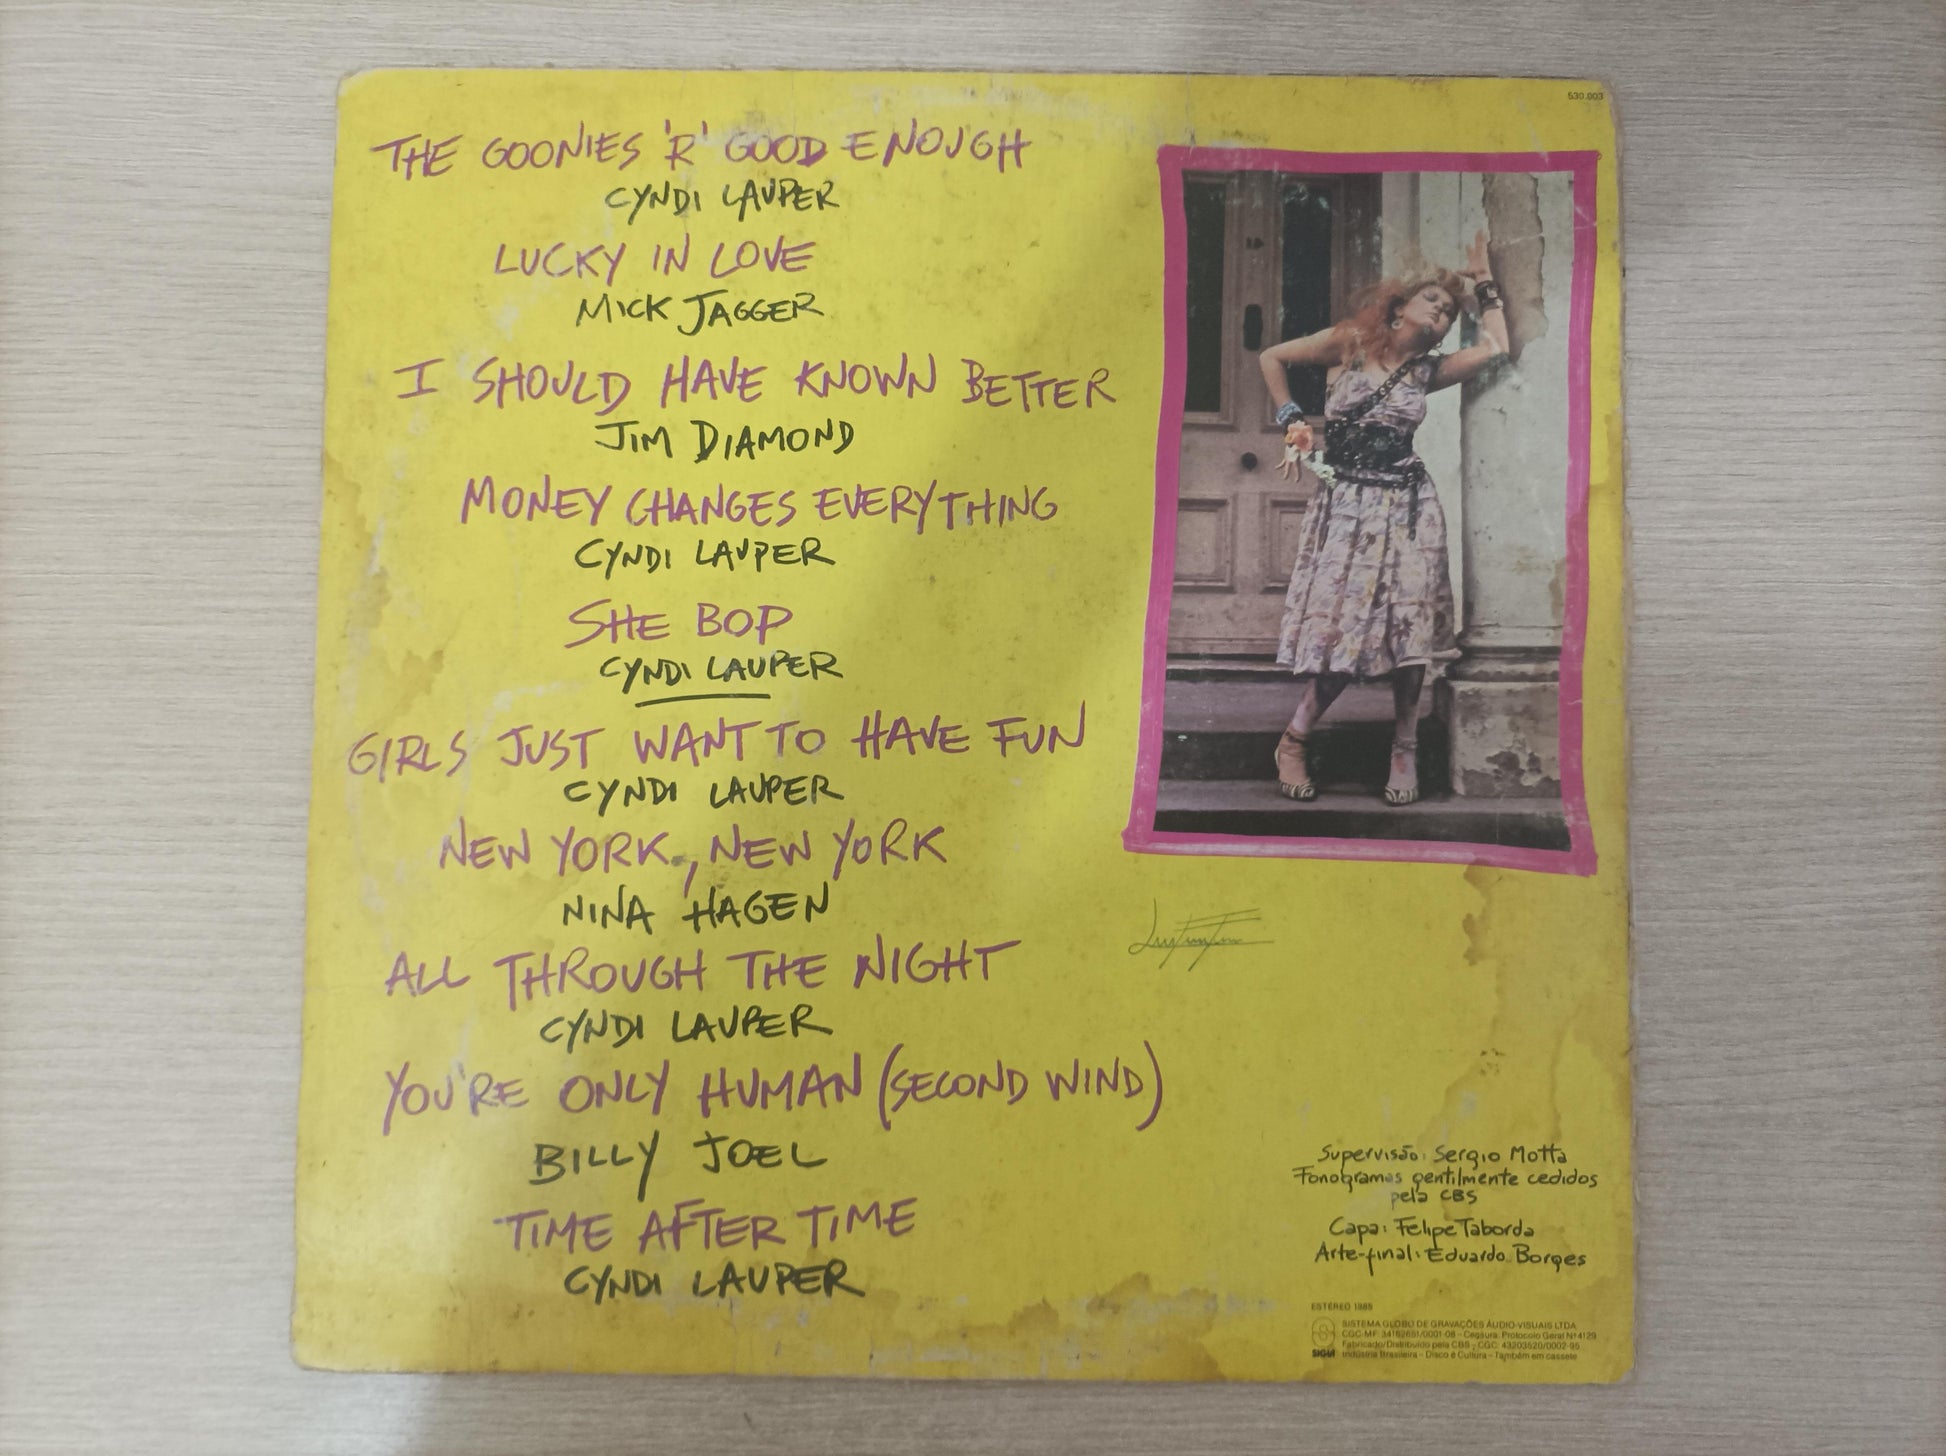 530.003
THE GOONIES 'R' GOOD ENOUGH
CYNDI LAUPER
LUCKY IN LOVE
MICK JAGGER
I SHOULD HAVE KNOWN BETTER
JIM DIAMOND
MONEY CHANGES EVERYTHING
CYNDI LAUPER
SHE BOP
CYNDI LAUPER
GIRLS JUST WANT TO HAVE FUN
CYNDI LAUPER
NEW YORK, NEW YORK
NINA HAGEN
ALL THROUGH THE NIGHT
CYNDI LAUPER
YOU'RE ONLY HUMAN (SECOND WIND)
BILLY JOEL
TIME AFTER TIME
CYNDI LAUPER
Supervisão: Sergio Motta
Fonogramas gentilmente cedidos
pela CBS
Capa: Felipe Taborda
Arte-final: Eduardo Borges
ESTÉREO 1985
SISTEMA GLOBO DE GRAVAÇÕES ÁUDIO-VISUAIS LTDA
CGC-MF: 34162651/0001-08 - Censura. Protocolo Geral Nº 4129
Fabricado/Distribuido pela CBS - CGC: 43203520/0002-95
SIGLA Indústria Brasileira - Disco é Cultura - Também em cassete